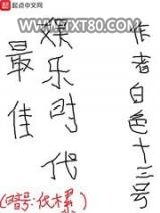 起点中文网
WWW.TXT80.COM
最佳
娱乐时代
作者白色十三号
(暗号:伐木累)